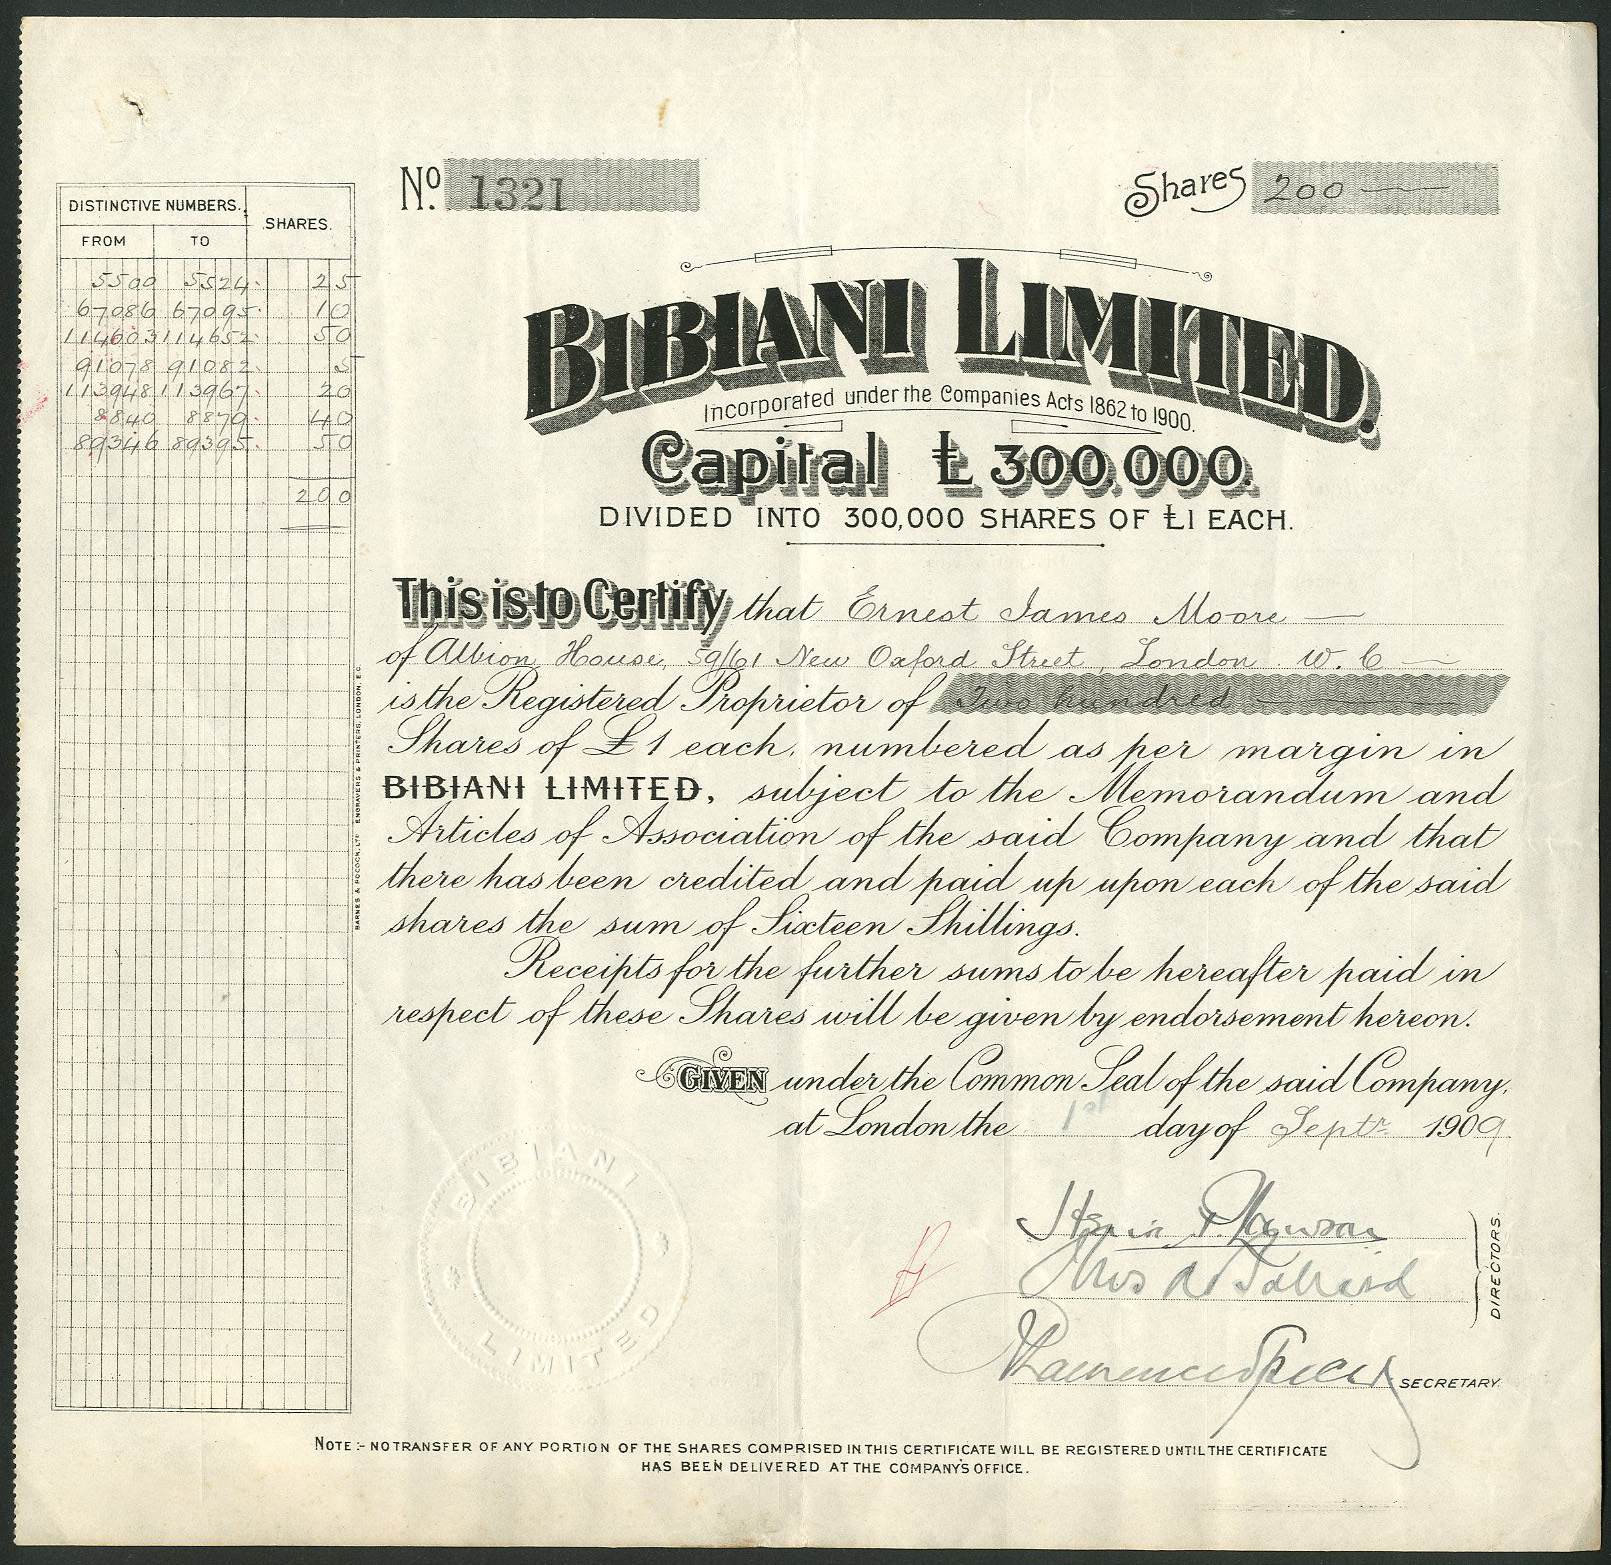 No. 1321
Shares 200
DISTINCTIVE NUMBERS. SHARES.
FROM TO
5500 5524 25
67086 67095 10
114603 114652 50
91078 91082 5
113948 113967 20
8840 8879 40
89346 89395 50
200
BIBIANI LIMITED.
Incorporated under the Companies Acts 1862 to 1900.
Capital £300,000.
DIVIDED INTO 300,000 SHARES OF £1 EACH.
This is to Certify that Ernest James Moore
of Albion House, 59/61 New Oxford Street, London W.C
is the Registered Proprietor of Two hundred
Shares of £1 each, numbered as per margin in
BIBIANI LIMITED, subject to the Memorandum and
Articles of Association of the said Company and that
there has been credited and paid up upon each of the said
shares the sum of Sixteen Shillings.
Receipts for the further sums to be hereafter paid in
respect of these Shares will be given by endorsement hereon.
GIVEN under the Common Seal of the said Company,
at London the 1st day of Septr 1909.
BIBIANI
LIMITED
DIRECTORS.
SECRETARY.
BARNES & POCOCK, LTD ENGRAVERS & PRINTERS, LONDON, E.C.
NOTE:- NO TRANSFER OF ANY PORTION OF THE SHARES COMPRISED IN THIS CERTIFICATE WILL BE REGISTERED UNTIL THE CERTIFICATE
HAS BEEN DELIVERED AT THE COMPANY'S OFFICE.